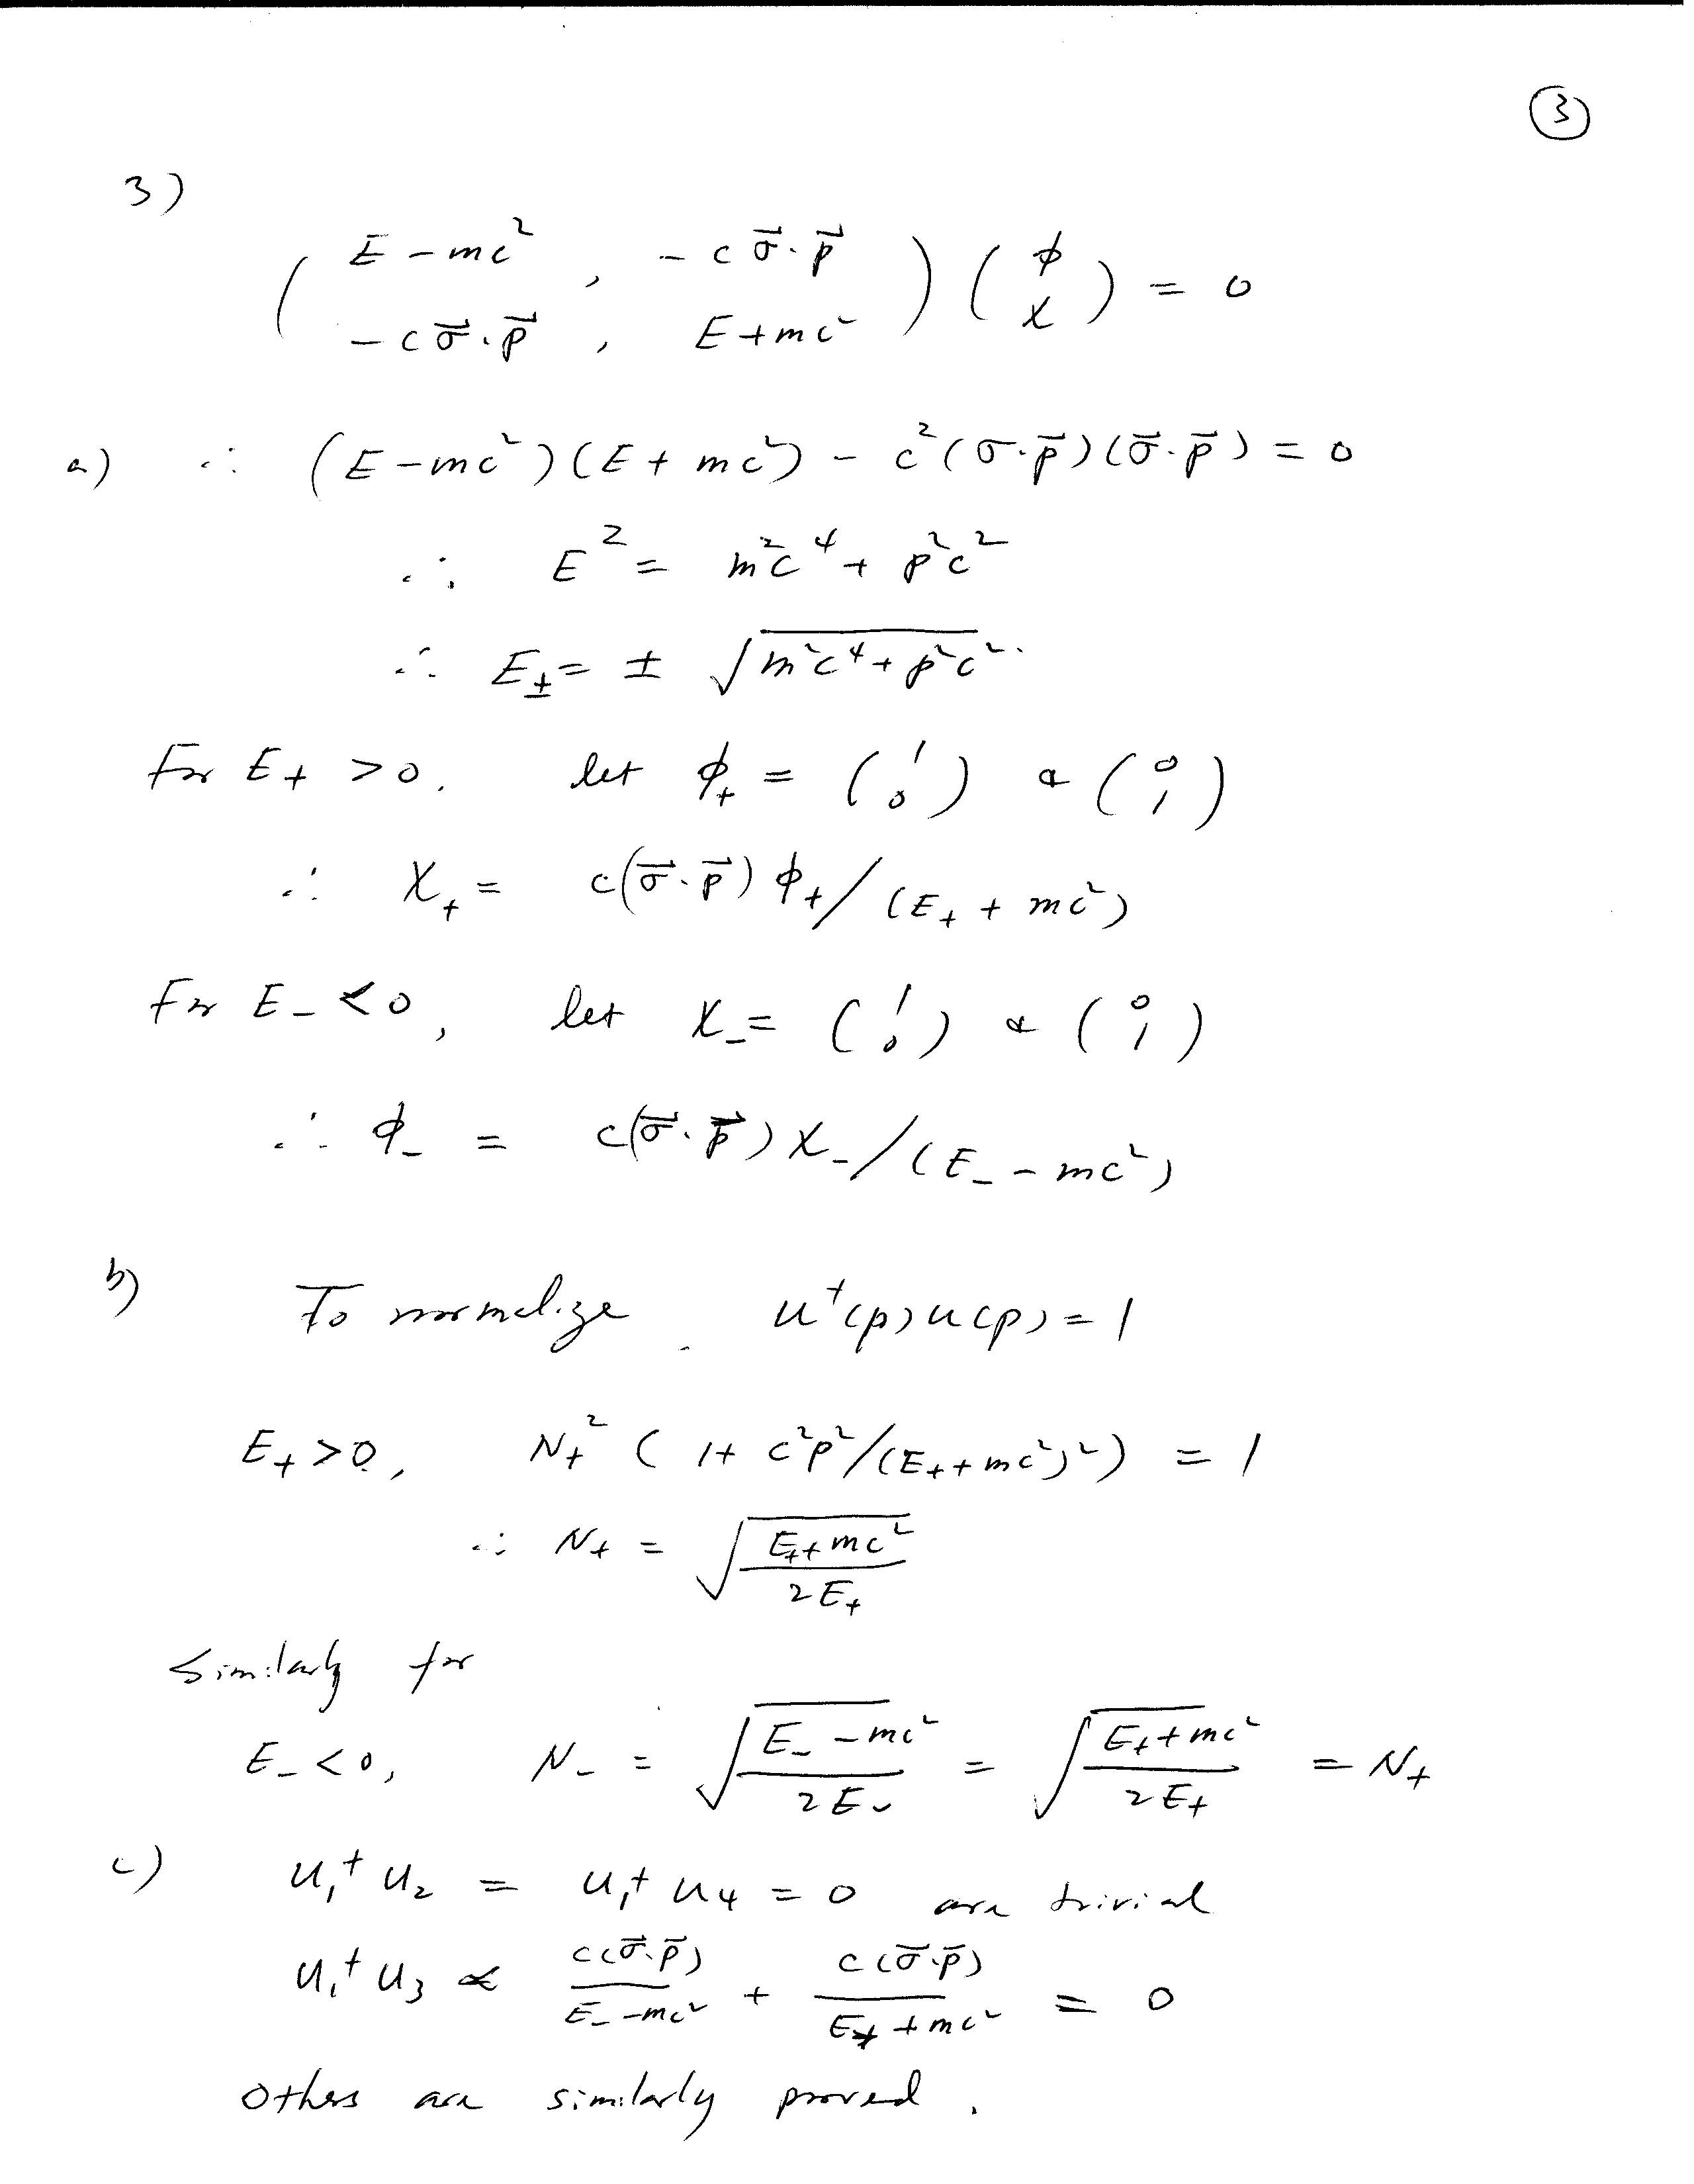 ③
3)
( E - mc² , - c σ⃗·p⃗ ) ( φ ) = 0
( - c σ⃗·p⃗ , E + mc² ) ( χ )
a) ∴ (E - mc²)(E + mc²) - c²(σ·p⃗)(σ⃗·p⃗) = 0
∴ E² = m²c⁴ + p²c²
∴ E± = ± √(m²c⁴ + p²c²).
For E₊ > 0, let φ₊ = (1 0) & (0 1)
∴ χ₊ = c(σ⃗·p⃗) φ₊ / (E₊ + mc²)
For E₋ < 0, let χ₋ = (1 0) & (0 1)
∴ φ₋ = c(σ⃗·p⃗) χ₋ / (E₋ - mc²)
b) To normalize. u⁺(p) u(p) = 1
E₊ > 0, N₊² ( 1 + c²p² / (E₊ + mc²)² ) = 1
∴ N₊ = √((E₊ + mc²) / 2E₊)
Similarly for
E₋ < 0, N₋ = √((E₋ - mc²) / 2E₋) = √((E₊ + mc²) / 2E₊) = N₊
c) u₁⁺ u₂ = u₁⁺ u₄ = 0 are trivial
u₁⁺ u₃ ∝ c(σ⃗·p⃗) / (E₋ - mc²) + c(σ⃗·p⃗) / (E₊ + mc²) = 0
Others are similarly proved.